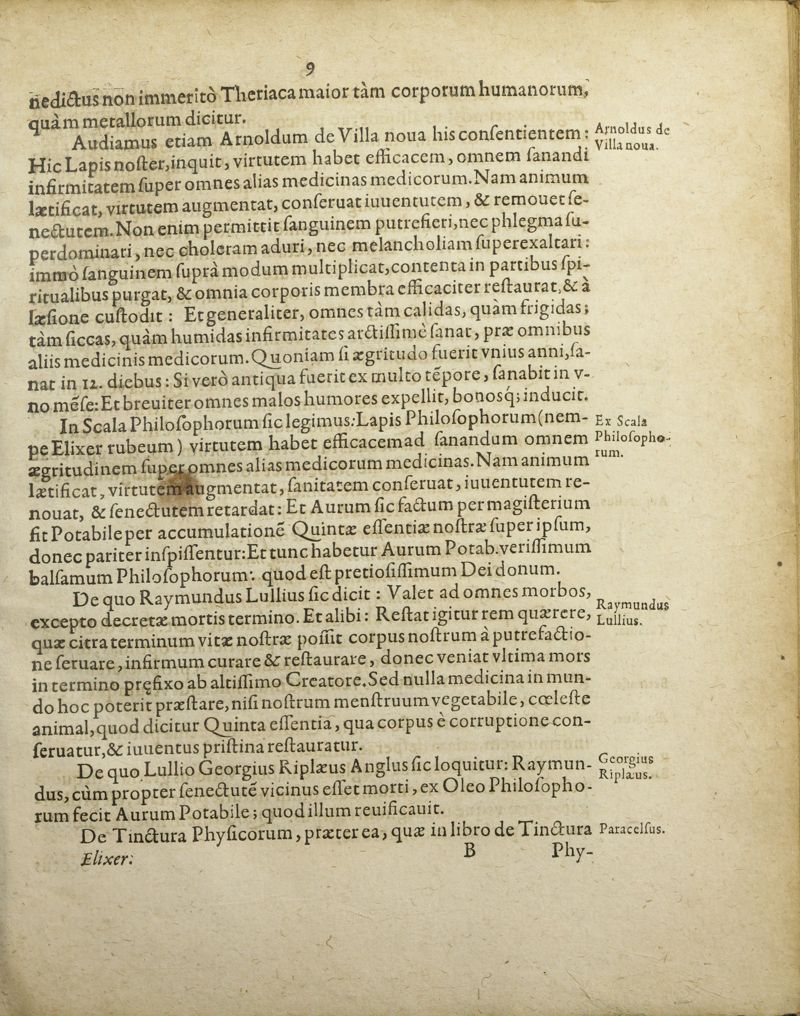 9
nedictus non immeritò Theriaca maior tàm corporum humanorum,
quàm metallorum dicitur.
Audiamus etiam Arnoldum de Villa noua his consentientem: Arnoldus de
Villa noua.
Hic Lapis noster, inquit, virtutem habet efficacem, omnem sanandi
infirmitatem super omnes alias medicinas medicorum. Nam animum
lætificat, virtutem augmentat, conseruat iuuentutem, & remouet se-
nectutem. Non enim permittit sanguinem putrefieri, nec phlegma su-
perdominari, nec choleram aduri, nec melancholiam superexaltari:
immò sanguinem suprà modum multiplicat, contenta in partibus spi-
ritualibus purgat, & omnia corporis membra efficaciter restaurat, & à
læsione custodit: Et generaliter, omnes tàm calidas, quàm frigidas;
tàm siccas, quàm humidas infirmitates arctissimè sanat, præ omnibus
aliis medicinis medicorum. Quoniam si ægritudo fuerit vnius anni, sa-
nat in 12. diebus: Si verò antiqua fuerit ex multo tēpore, sanabit in v-
no mēse: Et breuiter omnes malos humores expellit, bonosq; inducit.
In Scala Philosophorum sic legimus: Lapis Philosophorum (nem- Ex Scala
pe Elixer rubeum) virtutem habet efficacem ad sanandum omnem Philosopho-
rum.
ægritudinem super omnes alias medicorum medicinas. Nam animum
lætificat, virtutem augmentat, sanitatem conseruat, iuuentutem re-
nouat, & senectutem retardat: Et Aurum sic factum per magisterium
fit Potabile per accumulationē Quintæ essentiæ nostræ super ipsum,
donec pariter inspissentur: Et tunc habetur Aurum Potab. verissimum
balsamum Philosophorum: quod est pretiosissimum Dei donum.
De quo Raymundus Lullius sic dicit: Valet ad omnes morbos, Raymundus
excepto decretæ mortis termino. Et alibi: Restat igitur rem quærere, Lullius.
quæ citra terminum vitæ nostræ possit corpus nostrum à putrefactio-
ne seruare, infirmum curare & restaurare, donec veniat vltima mors
in termino pręfixo ab altissimo Creatore. Sed nulla medicina in mun-
do hoc poterit præstare, nisi nostrum menstruum vegetabile, cœleste
animal, quod dicitur Quinta essentia, qua corpus è corruptione con-
seruatur, & iuuentus pristina restauratur.
De quo Lullio Georgius Riplæus Anglus sic loquitur: Raymun- Georgius
Riplæus.
dus, cùm propter senectutē vicinus esset morti, ex Oleo Philosopho-
rum fecit Aurum Potabile; quod illum reuificauit.
De Tinctura Physicorum, præter ea, quæ in libro de Tinctura Paracelsus.
Elixer: B Phy-